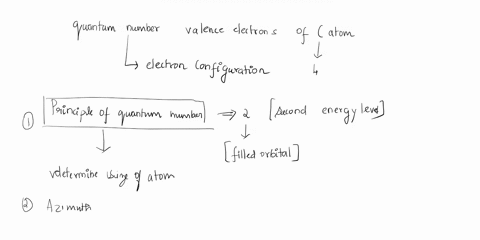 quantum number valence electrons of C atom
↳ electron configuration 4
① Principle of quantum number ⇒ 2 [second energy level]
[filled orbital]
determine size of atom
② Azimuth